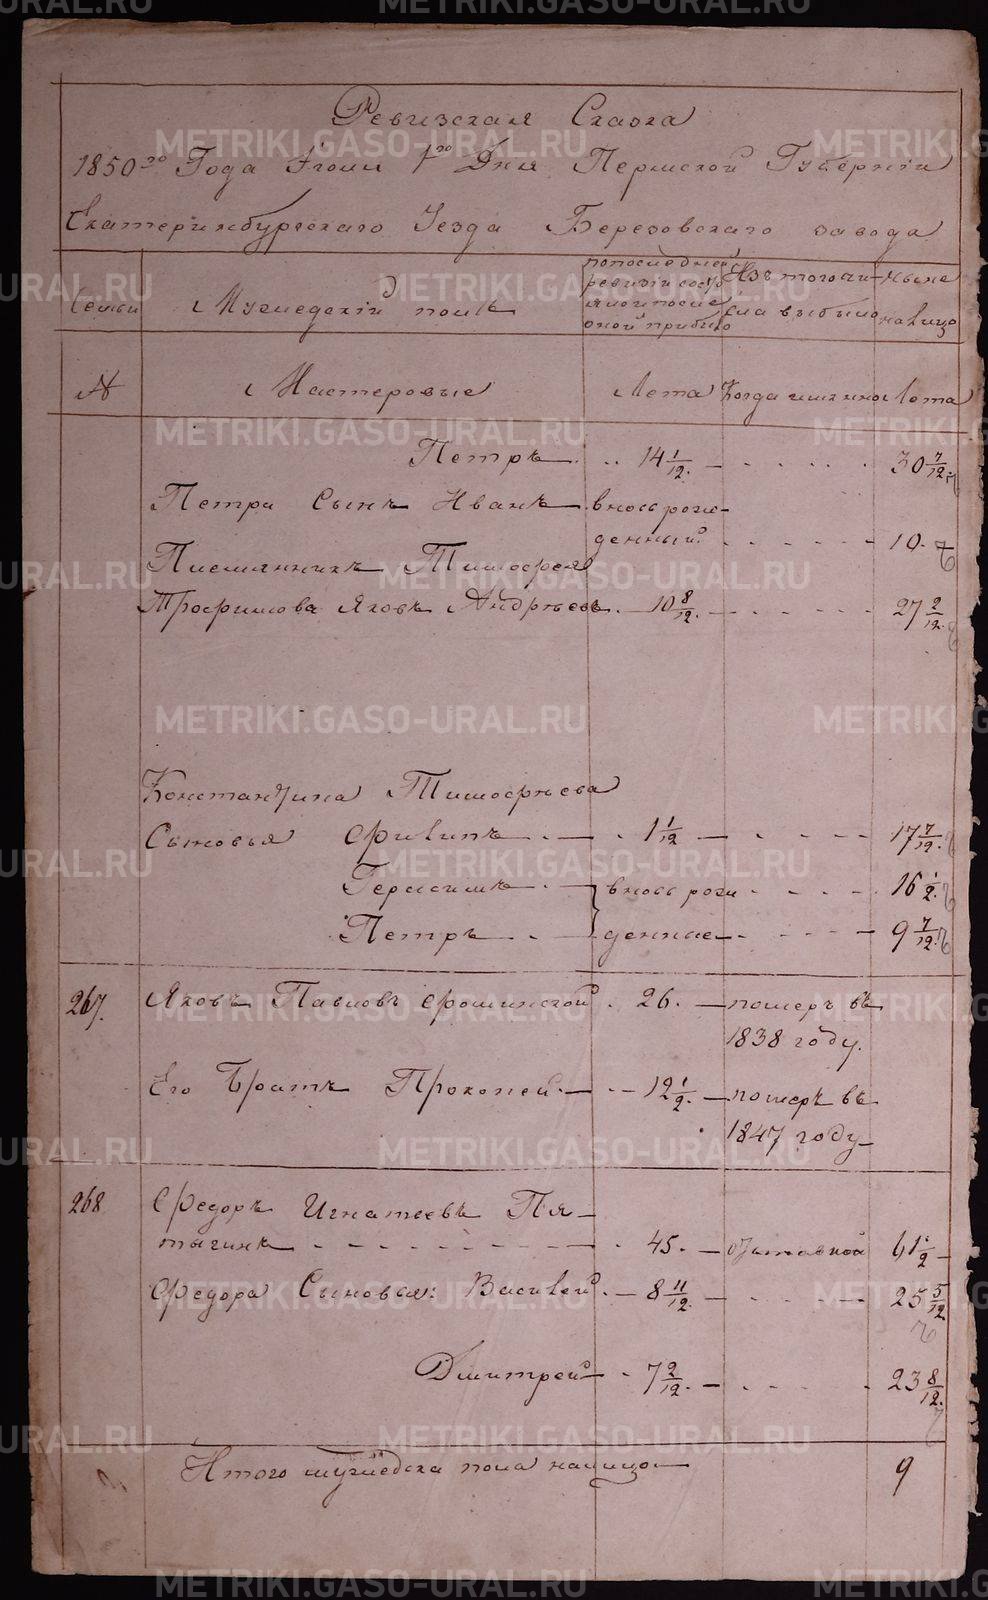 Ревизская Сказка
1850го Года Iюня 1го Дня Пермской Губернiи
Екатеринбургскаго Уезда Березовскаго завода
Семьи
Мужедскiй полъ
попоследней
ревизiи состо
яло и после
оной прибыло
Изъ того чи-
сла выбыло
Ныне
налицо
№
Мастеровые
Лета
Когда именно
Лета
Петръ 14 1/12 30 7/12
Петра Сынъ Иванъ вновь рож-
денный 10
Племянникъ Тимофея
Трофимова Яковъ Андрѣевъ 10 8/12 27 2/12
Константина Тимофѣева
Сыновья Филипъ 1 1/12 17 7/12
Герасимъ вновь рож 16 1/2
Петръ денные 9 7/12
267. Яковъ Павловъ 26. померъ въ
1838 году.
Его Братъ Прокопей 12 1/2 померъ въ
1847 году
268 Федоръ Игнатьевъ Пя-
тыгинъ 45. отставной 61 1/2
Федора Сыновья: Василей 8 11/12 25 5/12
Дмитрей 7 2/12 23 8/12
Итого мужедска пола налицо 9
METRIKI.GASO-URAL.RU